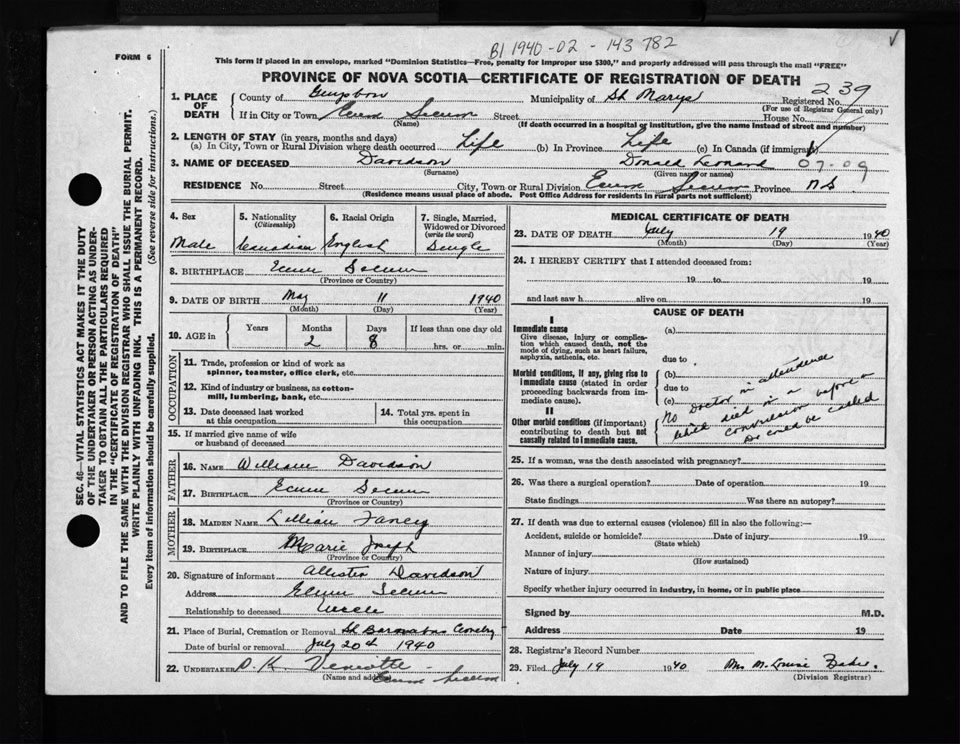 B1 1940-02-143782
FORM 6
This form if placed in an envelope, marked "Dominion Statistics—Free, penalty for improper use $300," and properly addressed will pass through the mail "FREE"
PROVINCE OF NOVA SCOTIA—CERTIFICATE OF REGISTRATION OF DEATH
239
1. PLACE OF DEATH County of Guysboro Municipality of St Marys Registered No.
(For use of Registrar General only)
If in City or Town Ecum Secum Street House No.
(Name) (If death occurred in a hospital or institution, give the name instead of street and number)
2. LENGTH OF STAY (in years, months and days)
(a) In City, Town or Rural Division where death occurred Life (b) In Province Life (c) In Canada (if immigrant)
3. NAME OF DECEASED Davidson Donald Leonard 07-09
(Surname) (Given name or names)
RESIDENCE No. Street City, Town or Rural Division Ecum Secum Province N S
(Residence means usual place of abode. Post Office Address for residents in rural parts not sufficient)
4. Sex
Male
5. Nationality
(Citizenship)
Canadian
6. Racial Origin
English
7. Single, Married, Widowed or Divorced
(write the word)
Single
8. BIRTHPLACE Ecum Secum
(Province or Country)
9. DATE OF BIRTH May 11 1940
(Month) (Day) (Year)
10. AGE in Years Months Days If less than one day old
2 8 hrs. or min.
OCCUPATION
11. Trade, profession or kind of work as
spinner, teamster, office clerk, etc.
12. Kind of industry or business, as cotton-
mill, lumbering, bank, etc.
13. Date deceased last worked
at this occupation
14. Total yrs. spent in
this occupation
15. If married give name of wife
or husband of deceased
FATHER
16. NAME William Davidson
17. BIRTHPLACE Ecum Secum
(Province or Country)
MOTHER
18. MAIDEN NAME Lillian Fancy
19. BIRTHPLACE Marie Joseph
(Province or Country)
20. Signature of informant Allister Davidson
Address Ecum Secum
Relationship to deceased Uncle
21. Place of Burial, Cremation or Removal St Barnabas Cemetery
Date of burial or removal July 20th 1940
22. UNDERTAKER D. K.
(Name and address) Ecum Secum
MEDICAL CERTIFICATE OF DEATH
23. DATE OF DEATH July 19 1940
(Month) (Day) (Year)
24. I HEREBY CERTIFY that I attended deceased from:
19 to 19
and last saw h alive on 19
CAUSE OF DEATH
I
Immediate cause
Give disease, injury or complica-
tion which caused death, not the
mode of dying, such as heart failure,
asphyxia, asthenia, etc.
(a)
due to
Morbid conditions, if any, giving rise to
immediate cause (stated in order
proceeding backwards from im-
mediate cause).
(b)
due to
(c)
II
Other morbid conditions (if important)
contributing to death but not
causally related to immediate cause.
No Doctor in attendence
child died in a
convulsion before
Dr could be called
25. If a woman, was the death associated with pregnancy?
26. Was there a surgical operation? Date of operation 19
State findings Was there an autopsy?
27. If death was due to external causes (violence) fill in also the following:—
Accident, suicide or homicide? Date of injury 19
(State which)
Manner of injury
(How sustained)
Nature of injury
Specify whether injury occurred in industry, in home, or in public place
Signed by M.D.
Address Date 19
28. Registrar's Record Number
29. Filed July 19 1940 Mrs M. Louise Baker.
(Division Registrar)
SEC. 46—VITAL STATISTICS ACT MAKES IT THE DUTY
OF THE UNDERTAKER OR PERSON ACTING AS UNDER-
TAKER TO OBTAIN ALL THE PARTICULARS REQUIRED
IN THE "CERTIFICATE OF REGISTRATION OF DEATH"
AND TO FILE THE SAME WITH THE DIVISION REGISTRAR WHO SHALL ISSUE THE BURIAL PERMIT.
WRITE PLAINLY WITH UNFADING INK. THIS IS A PERMANENT RECORD.
Every item of information should be carefully supplied. (See reverse side for instructions.)